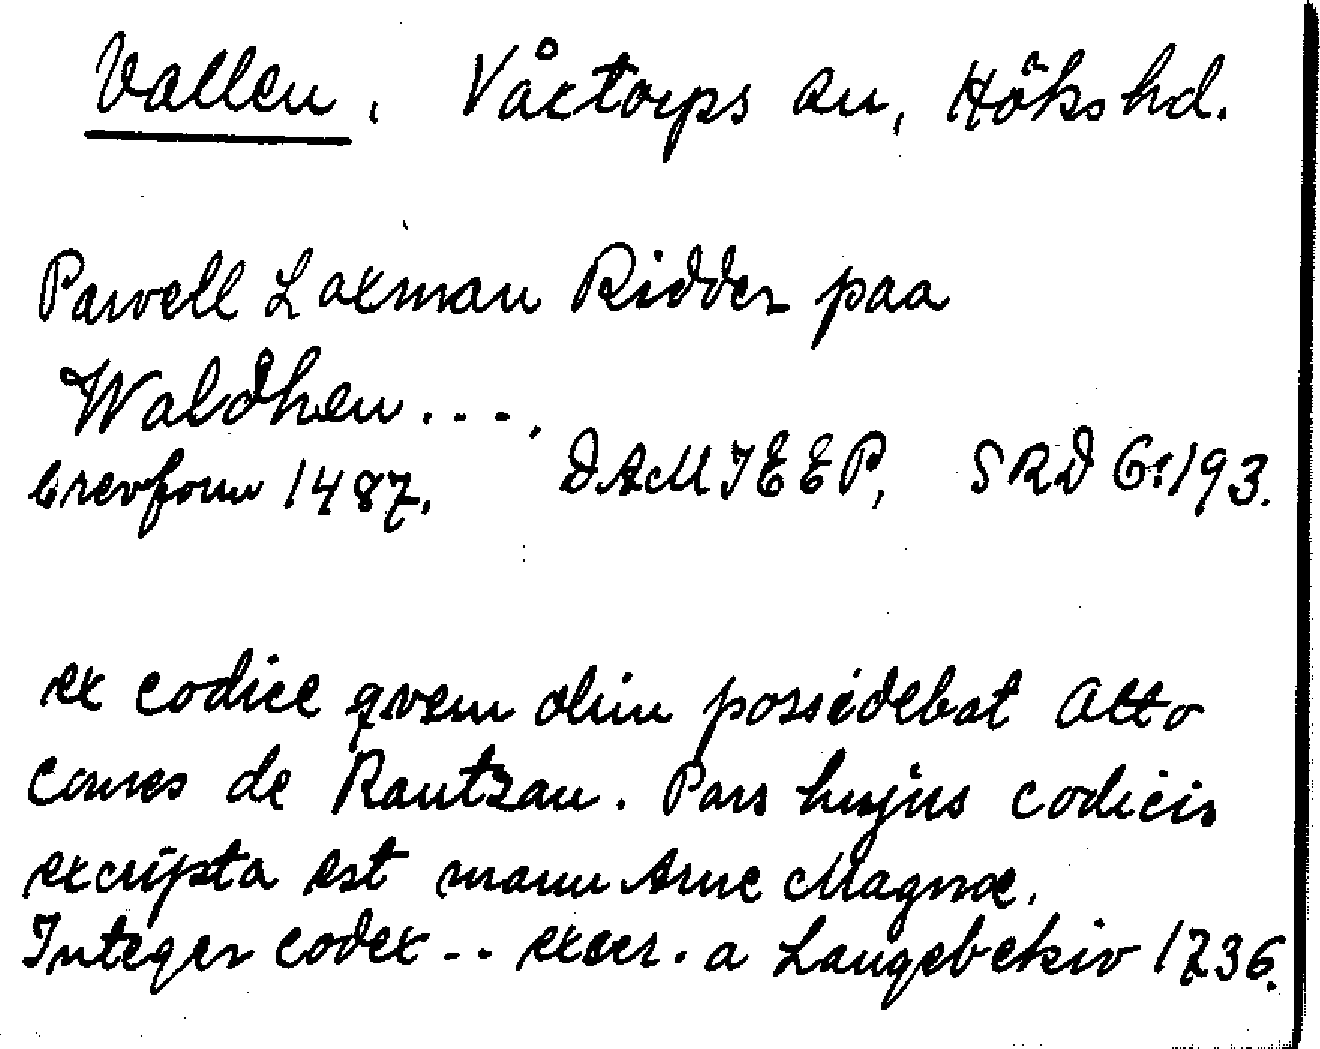 Vallen, Våxtorps sn, Höks hd.
Pawell Laxman Ridder paa
Waldhen ....
brevform 1487. DAMJEEP, SRD 6:193.
ex codice qvem olim possidebat Otto
comes de Rantzau. Pars hujus codicis
excripta est manu Arne Magnæ.
Integer codex -- excer. a Langebekio 1736.